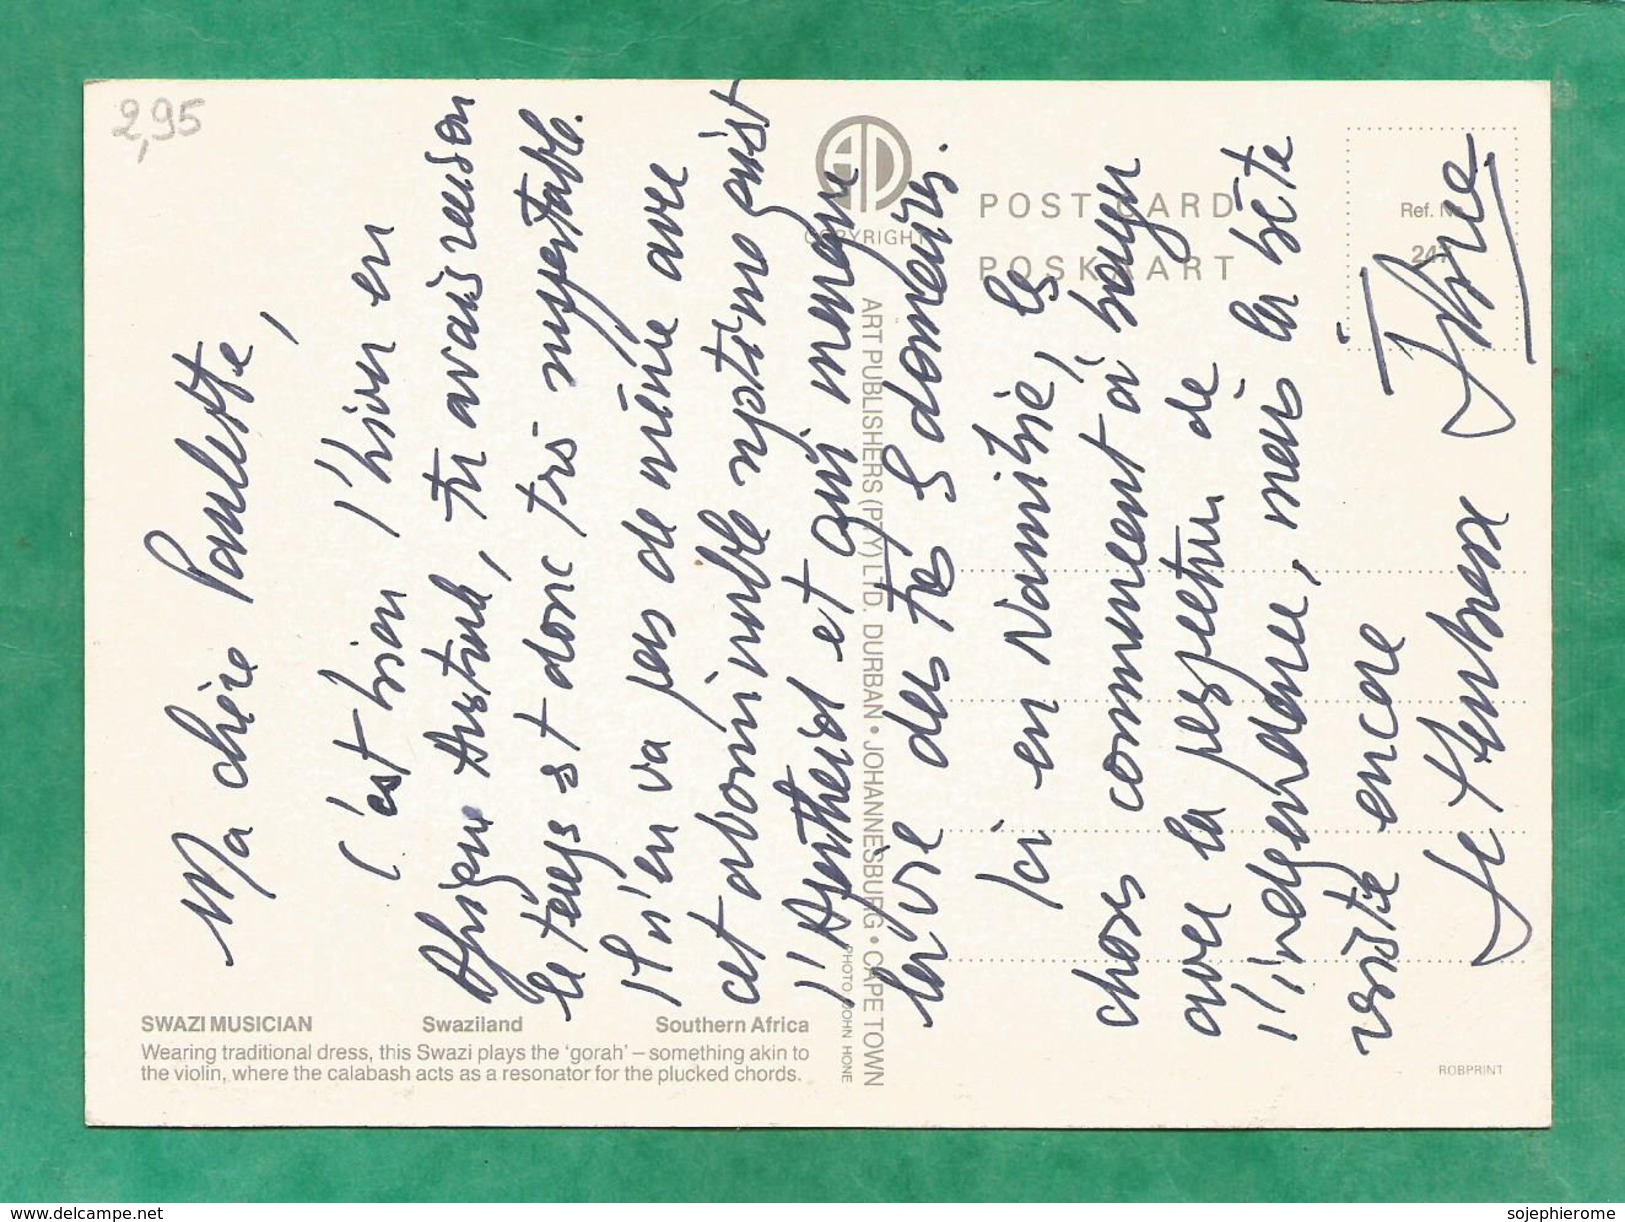 2,95
Ma chère Paulette,
C'est bien l'hiver en
Afrique Australe, tu avais raison
le temps est donc très supportable.
Il n'en va pas de même avec
cet abominable système qu'est
l'Apartheid et qui mange
la vie des très
Ici en Namibie, les
choses commencent à bouger
avec la perspective de
l'indépendance, mais la bête
résiste encore
Je t'embrasse
SWAZI MUSICIAN Swaziland Southern Africa
Wearing traditional dress, this Swazi plays the 'gorah' – something akin to
the violin, where the calabash acts as a resonator for the plucked chords.
COPYRIGHT
POST CARD
POSKAART
Ref. No
247
ART PUBLISHERS (PTY) LTD. DURBAN • JOHANNESBURG • CAPE TOWN
PHOTO JOHN HONE
ROBPRINT
www.delcampe.net
sojephierome